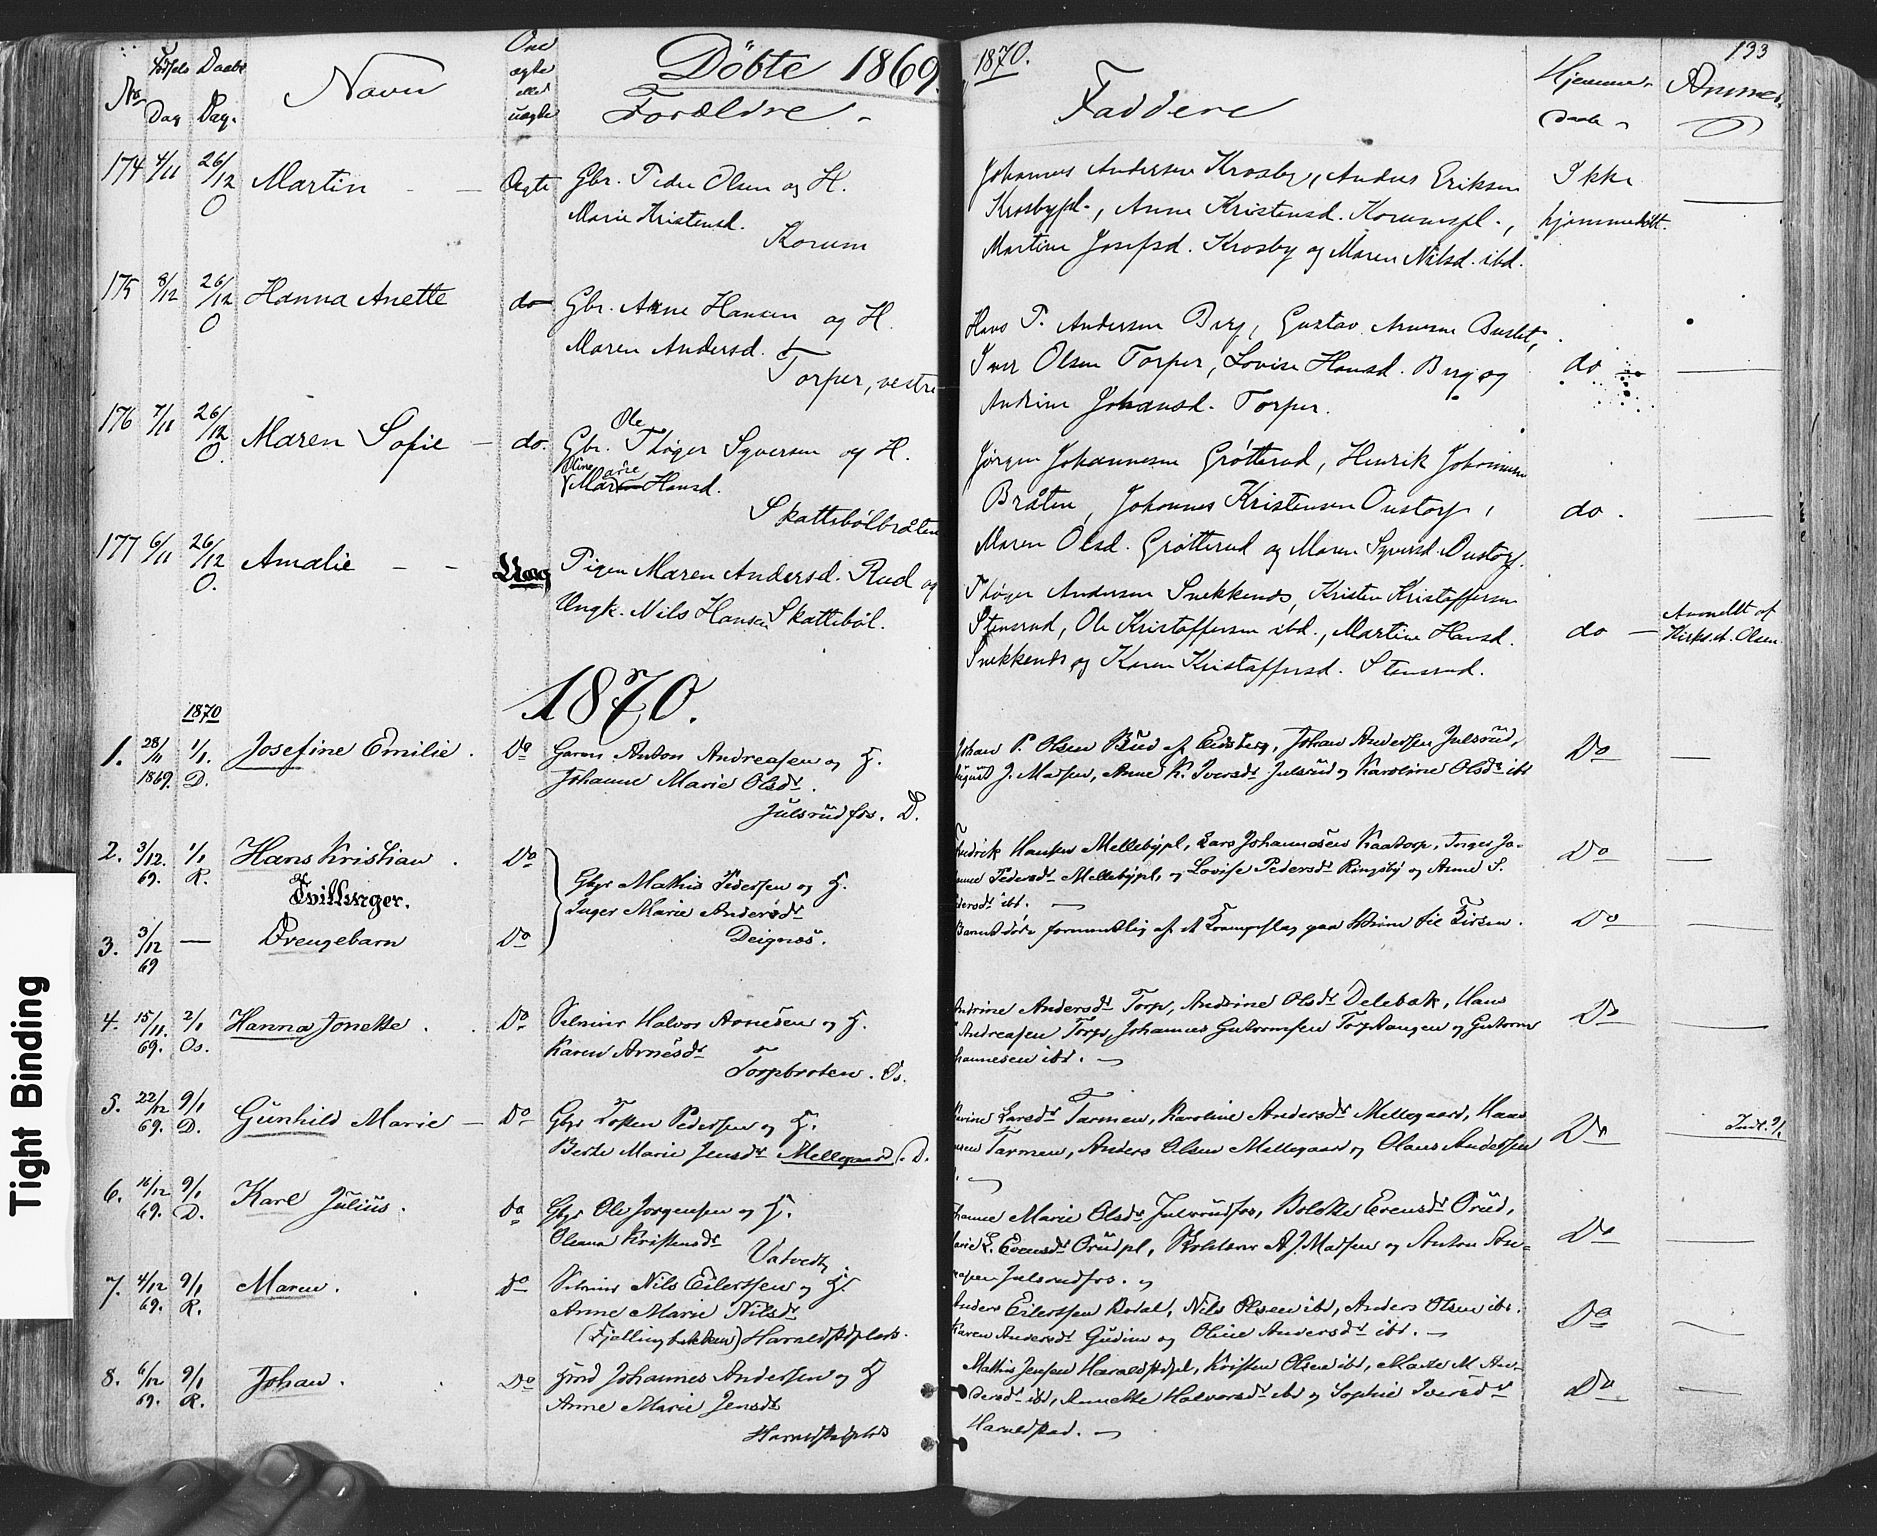 Døbte 1869. 1870. 133
No Fødsels Dag Daabs Dag. Navn Om ægte eller uægte Forældre - Faddere Hjemme- daab Anmæ.
174 4/11 26/12 O Martin - - Ægte Gbr. Peder Olsen og H.
Marie Kristensd.
Korum
Johannes Andersen Krosby, Anders Eriksen
Krosbypl., Anne Kristensd. Korumspl.,
Martine Josefsd. Krosby og Maren Nilsd. ibd.
Ikke
hjemmedøbt.
175 8/12 26/12 O Hanna Anette do Gbr. Arne Hansen og H.
Maren Andersd.
Torper, vestre
Hans P. Andersen Berg, Gustav Arnesen
Iver Olsen Torper, Lovise Hansd. Berg og
Andrine Johansd. Torper.
do
176 7/11 26/12 O. Maren Sofie - do. Gbr. Ole Thøger Syversen og H.
Oline Marie Hansd.
Skattebølbråten
Jørgen Johannesen Grøtterud, Henrik Johannesen
Bråten, Johannes Kristensen Oustorp,
Maren Olsd. Grøtterud og Maren Syversd. Oustorp.
do.
177 6/11 26/12 O. Amalie - - Uæg Pigen Maren Andersd. Rud og
Ungk. Nils Hansen Skattebøl.
Thøger Andersen Snekkenes, Kristen Kristoffersen
Stensrud, Ole Kristoffersen ibd., Martine Hansd.
Snekkenes og Karen Kristoffersd. Stensrud.
do -
Anmeldt af
Kirks. A. Olsen
1870.
1870
1. 28/11 1869. 1/1. D. Josefine Emilie. Do Gaarm. Anton Andreasen og H.
Johanne Marie Olsdr.
Julsrudfos. D.
Johan P. Olsen Bud af Eidsberg, Johan Andersen Julsrud,
August J. Madsen, Anne K. Iversdr Julsrud og Karoline Olsdr ibd
Do
2. 3/12. 69. 1/1 R. Hans Kristian. Do
Tvillinger.
Gbr Mathis Pedersen og H.
Inger Marie Andersdr
Deignæs.
Fredrik Hansen Mellebypl, Lars Johannesen Kaatorp, Inger Jo-
hanne Pedersdr Mellebypl, og Lovise Pedersdr Ringsby og Anne S.
Pedersdr ibd. -
Do
3. 3/12 69 — Drengebarn Do
Barnet døde formentlig af et Krampeslag paa Veien til Kirken.
Do
4. 15/11. 69. 2/1 Os. Hanna Jonette. Do Selveier Halvor Arnesen og H.
Karen Arnesdr
Torpbroten. Os.
Andrine Andersdr Torp, Andrine Olsdr Delebæk, Hans
Andreasen Torp, Johannes Guttormsen Torptangen og Guttorm
Johannesen ibd. -
Do
5. 22/12 69. 9/1 D. Gunhild Marie - Do Gbr Tosten Pedersen og H.
Berte Marie Jensdr Mellegaard. D.
Larsdr Tarmen, Karoline Andersdr Mellegaard, Hans
Tarmen, Anders Olsen Mellegaard og Olaus Andersen
Do
Indt. 9/1
6. 16/12 69. 9/1 D. Karl Julius. do Gbr Ole Jørgensen og H.
Oleana Kristensdr
Vatvedt.
Johanne Marie Olsdr Julsrudfos, Bolette Evensdr Ørud,
Marie L. Evensdr Ørudpl, A. J. Madsen og Anton And-
reasen Julsrudfos.
Do
7. 4/12 69. 9/1 R. Maren. Do Selveier Nils Eilertsen og H.
Anne Marie Nilsdr
(Fjellingbakken) Haraldstadplads.
Anders Eilertsen Bodal, Nils Olsen ibd, Anders Olsen ibd.
Karen Andersdr Gudim og Oline Andersdr ibd. -
Do
8. 6/12 69. 9/1 R. Johan. Do Hmd Johannes Andersen og H
Anne Marie Jensdr
Haraldstadplads
Mathis Jensen Haraldstadpl, Kristen Olsen ibd, Marte M. An-
dersdr ibd, Annette Halvorsdr ibd og Sophie Iversdr
Haraldstad. -
Do
Tight Binding